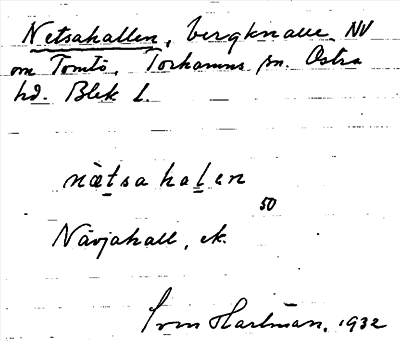 Netsahallen, bergknalle NV
om Tomts, Torhamns sn. Östra
hd. Blek l.
nætsa halen
50
Nävjahall, ek.
Sven Hartman, 1932